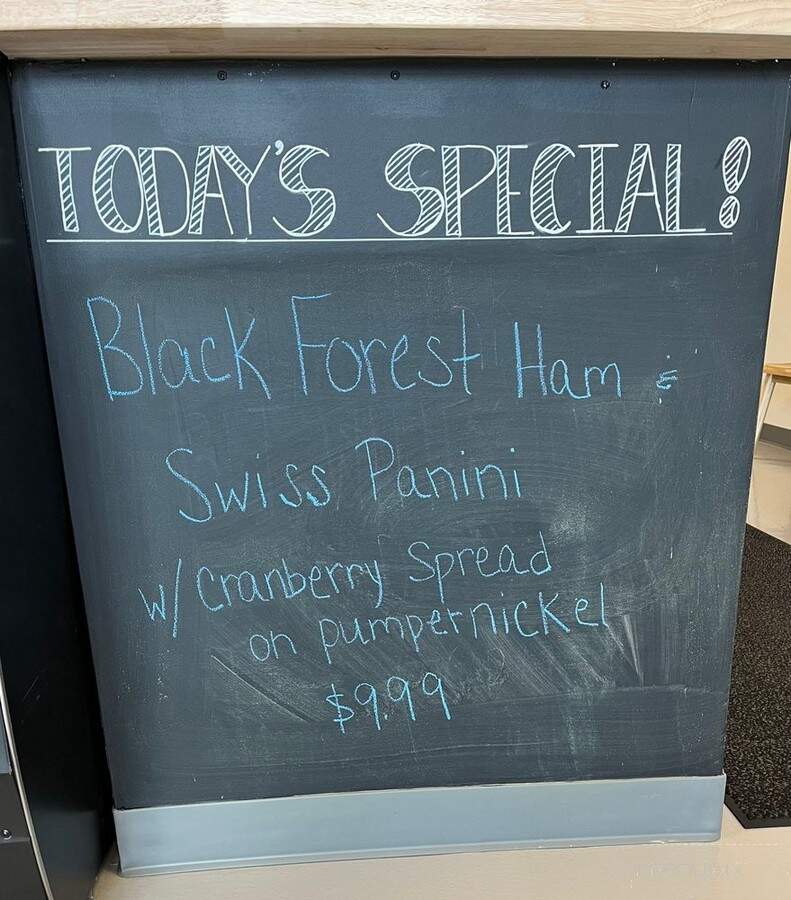 TODAY'S SPECIAL!
Black Forest Ham &
Swiss Panini
w/ Cranberry Spread
on pumpernickel
$9.99